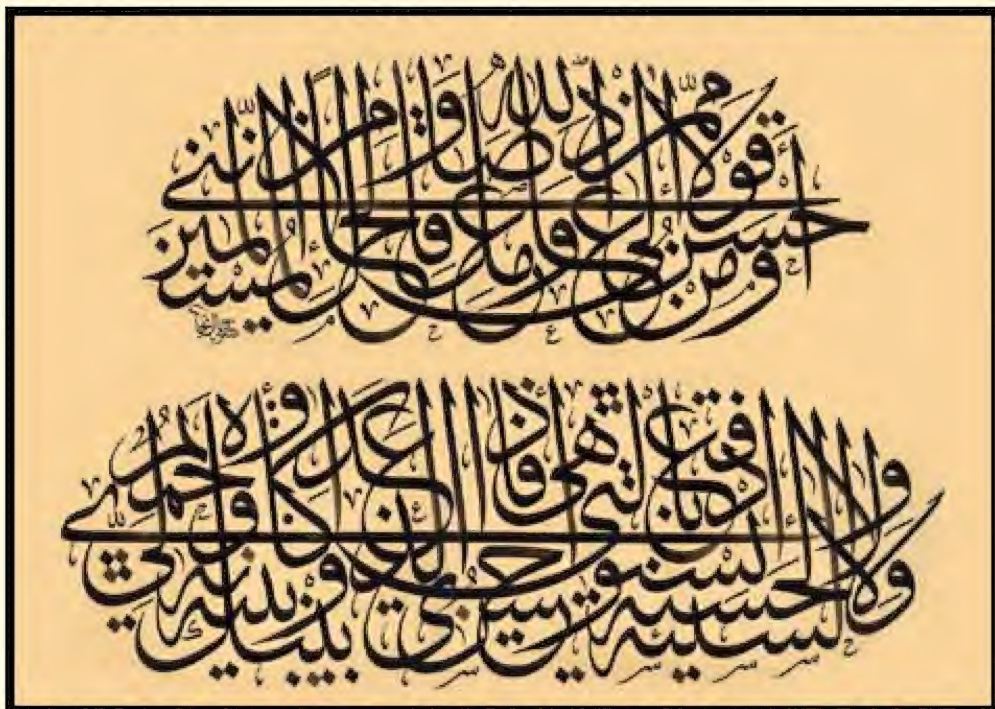 ومن أحسن قولا ممن دعا إلى الله وعمل صالحا وقال إنني من المسلمين
ولا تستوي الحسنة ولا السيئة ادفع بالتي هي أحسن فإذا الذي بينك وبينه عداوة كأنه ولي حميم